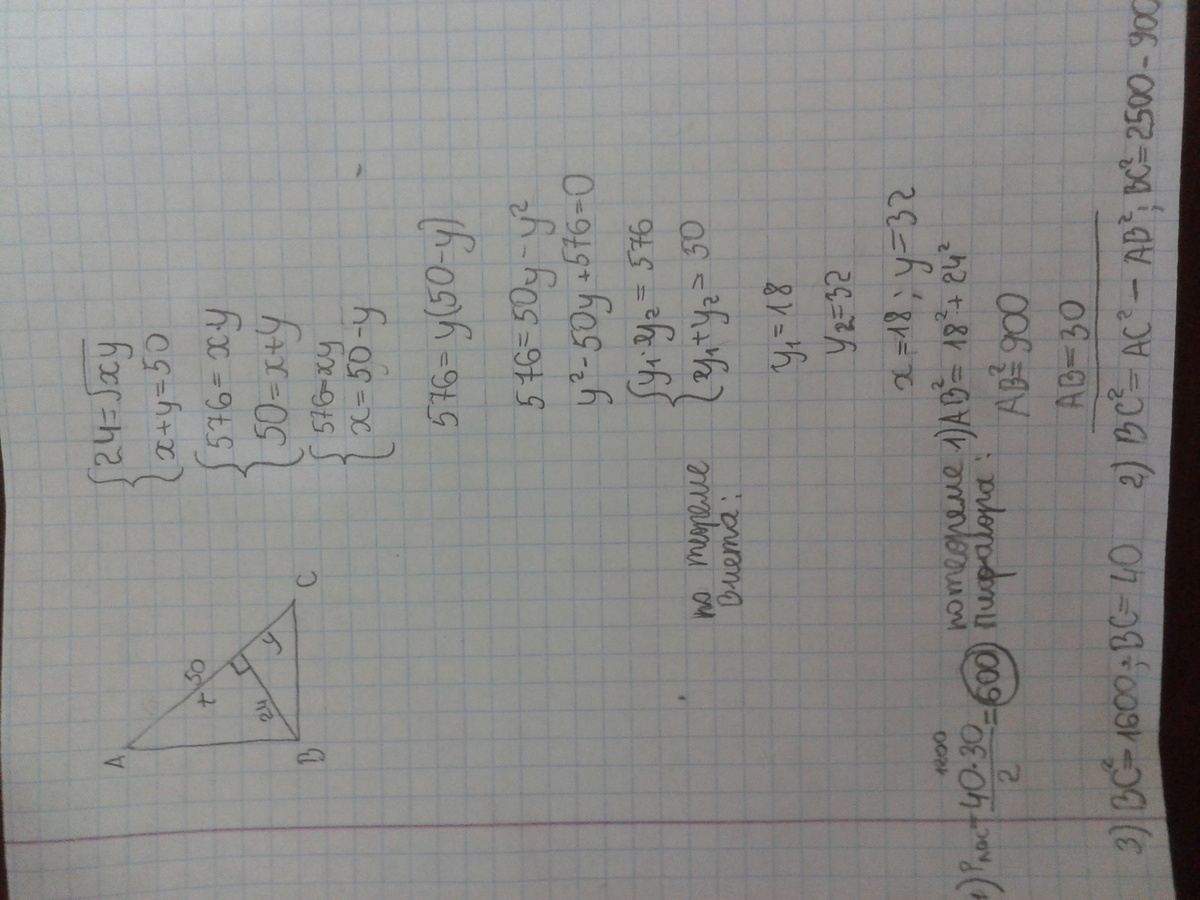 A
x 50
24
y
B
C
24=√xy
x+y=50
576=x·y
50=x+y
576=xy
x=50-y
576=y(50-y)
576=50y-y²
y²-50y+576=0
по теореме
Виета:
y₁·y₂=576
y₁+y₂=50
y₁=18
y₂=32
x=18; y=32
по теореме
Пифагора:
1) AB²=18²+24²
AB²=900
AB=30
2) BC²=AC²-AB²; BC²=2500-900
3) BC²=1600; BC=40
1200
40·30
2
=600